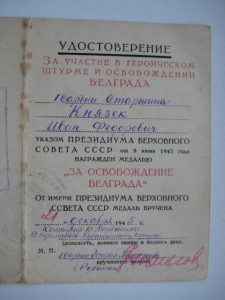 УДОСТОВЕРЕНИЕ
ЗА УЧАСТИЕ В ГЕРОИЧЕСКОМ
ШТУРМЕ И ОСВОБОЖДЕНИИ
БЕЛГРАДА
Гвардии Старшина
Князек
Иван Федорович
УКАЗОМ ПРЕЗИДИУМА ВЕРХОВНОГО
СОВЕТА СССР от 9 июня 1945 года
НАГРАЖДЕН МЕДАЛЬЮ
„ЗА ОСВОБОЖДЕНИЕ
БЕЛГРАДА“
ОТ ИМЕНИ ПРЕЗИДИУМА ВЕРХОВНОГО
СОВЕТА СССР МЕДАЛЬ ВРУЧЕНА
21 декабря 1945 г.
(должность, воинское звание и подпись лица,
М. П.
вручившего медаль)